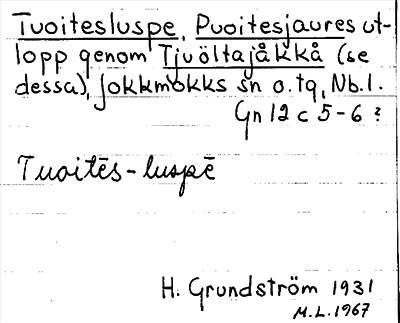 Tuoitesluspe, Puoitesjaures ut-
lopp genom Tjuöltajåkkå (se
dessa), Jokkmokks sn o. tg, Nb. l.
Gn 12 c 5-6 ?
Tuoitēs-luspē
H. Grundström 1931
M.L. 1967